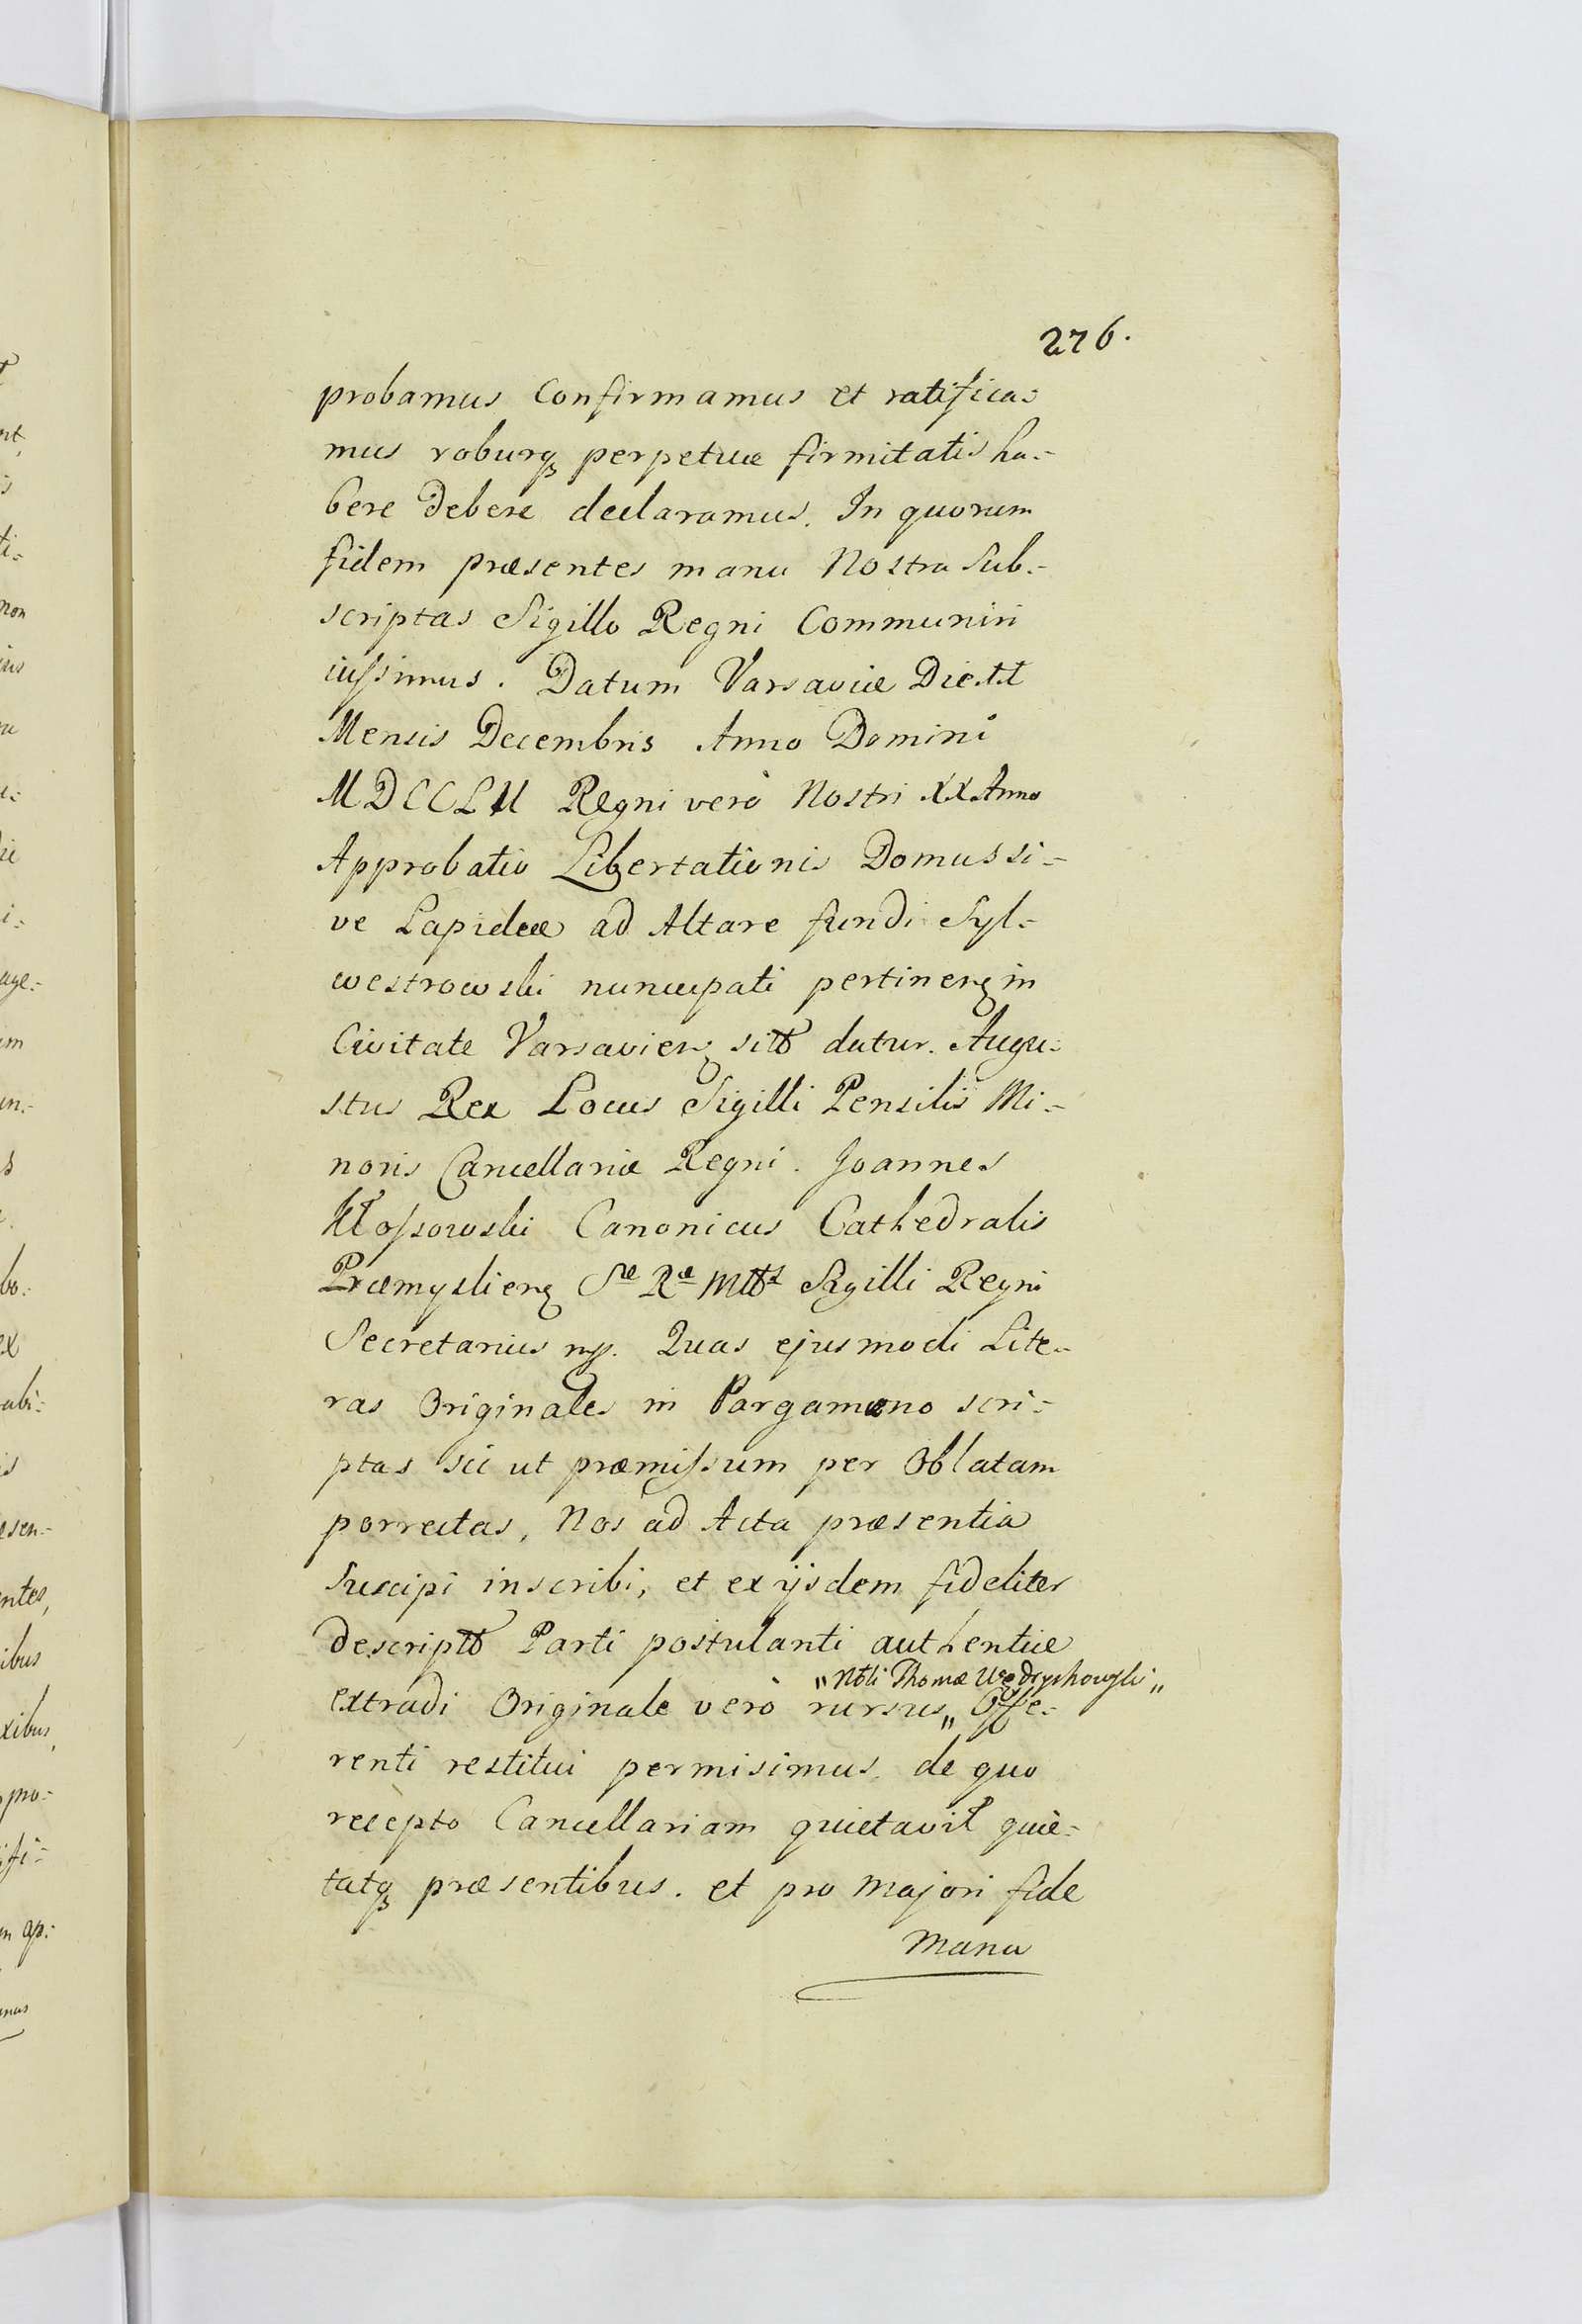 276.
probamus Confirmamus et ratifica=
mus roburqȝ perpetuæ firmitatis ha=
bere Debere declaramus. In quorum
fidem præsentes manu Nostra Sub=
scriptas Sigillo Regni Communiri
iussimus. Datum Varsaviæ Die
Mensis Decembris Anno Domini
MDCCLII Regni verò Nostri XX Anno
Approbatio Libertationis Domus si=
ve Lapideæ ad Altare fundi Syl=
westrowski nuncupati pertinenȝ in
Civitate Varsavienȝ sitæ datur. Augu=
stus Rex Locus Sigilli Pensilis Mi=
noris Cancellariæ Regni. Joannes
Kłossowski Canonicus Cathedralis
Præmyslienȝ Sæ Ræ Mttis Sigilli Regni
Secretarius mp. Quas ejusmodi Lite=
ras Originales in Pargameno scri=
ptas sic ut præmissum per Oblatam
porrectas, Nos ad Acta præsentia
Suscipi inscribi, et ex ijsdem fideliter
descriptas Parti postulanti authenticæ
"Nbli Thomæ Wędrychowski"
extradi Originale verò rursus„ Offe=
renti restitui permisimus, de quo
recepto Cancellariam quietavit quie=
tatqȝ præsentibus. et pro majori fide
manu